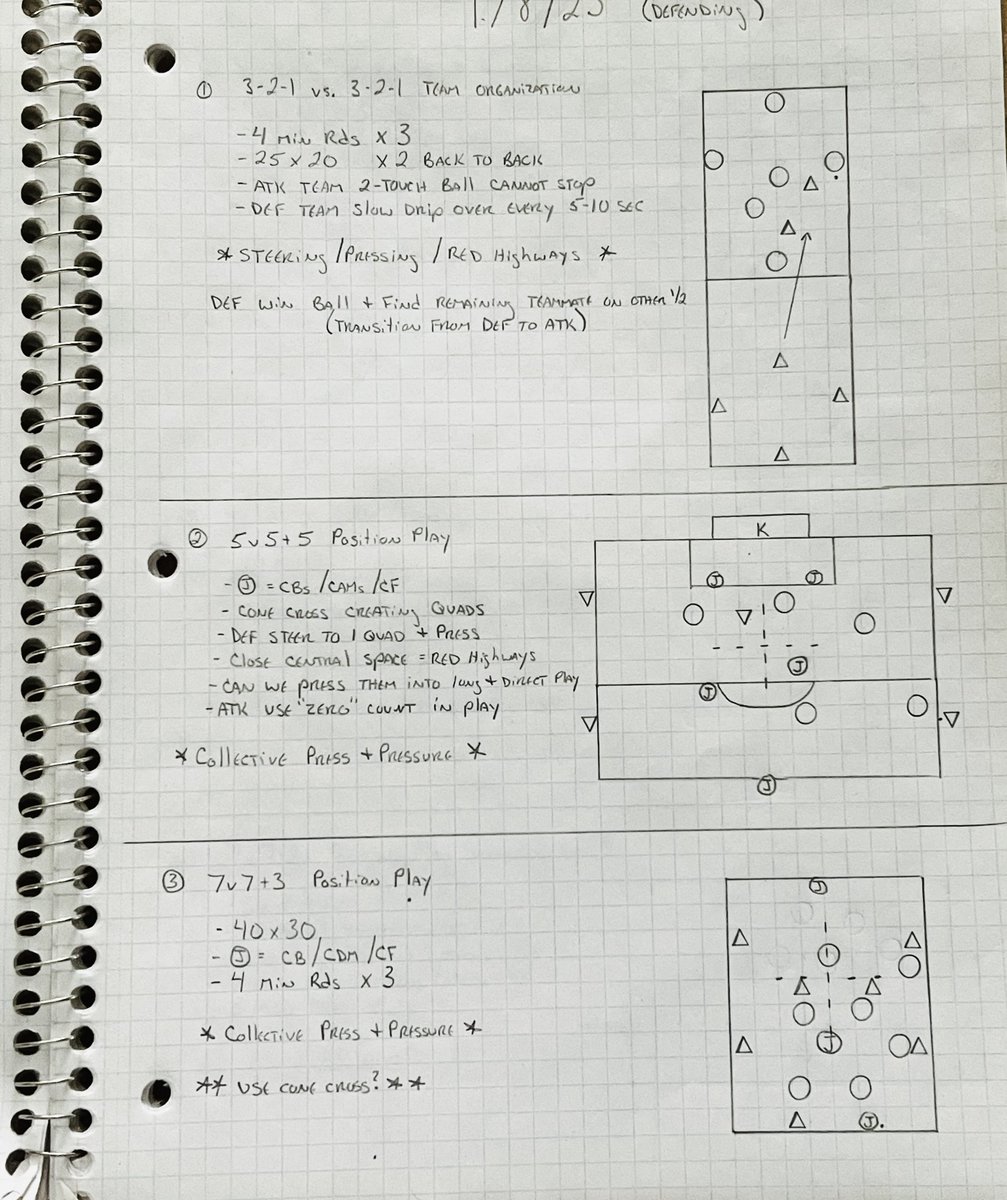 (DEFENDING)
① 3-2-1 vs. 3-2-1 TEAM ORGANIZATION
- 4 Min Rds x 3
- 25 x 20 x 2 BACK TO BACK
- ATK TEAM 2-TOUCH BALL CANNOT STOP
- DEF TEAM SLOW DRIP OVER EVERY 5-10 SEC
* STEERING / PRESSING / RED HIGHWAYS *
DEF WIN BALL + FIND REMAINING TEAMMATE ON OTHER 1/2
(TRANSITION FROM DEF TO ATK)
② 5v5+5 POSITION PLAY
- Ⓙ = CBs / CAMs / CF
- CONE CROSS CREATING QUADS
- DEF STEER TO 1 QUAD + PRESS
- CLOSE CENTRAL SPACE = RED HIGHWAYS
- CAN WE PRESS THEM INTO LONG + DIRECT PLAY
- ATK USE "ZERO" COUNT IN PLAY
* COLLECTIVE PRESS + PRESSURE *
K
J J
J
J
J
③ 7v7+3 POSITION PLAY
- 40 x 30
- Ⓙ = CB / CDM / CF
- 4 Min Rds x 3
* COLLECTIVE PRESS + PRESSURE *
** USE CONE CROSS? **
J
J
J